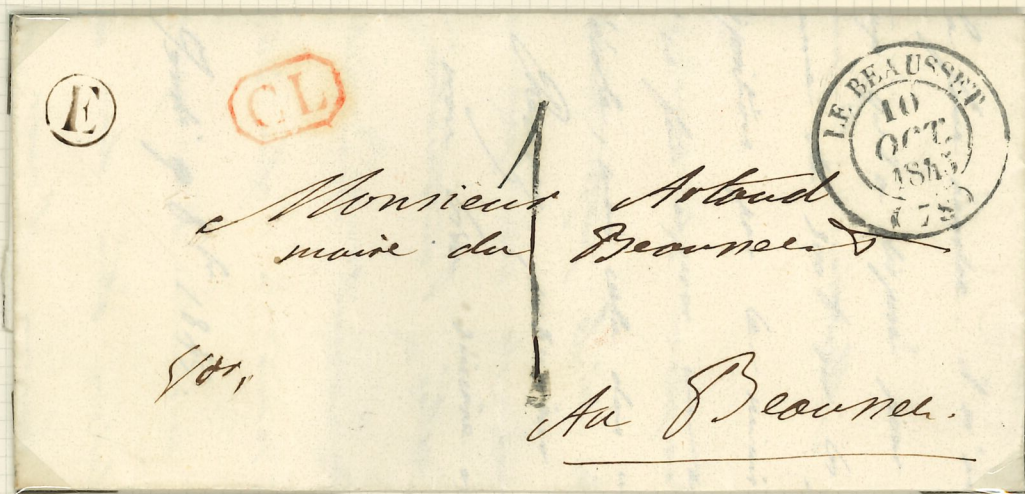 E
CL
LE BEAUSSET
10
OCT.
1845
(78)
1
Monsieur Artaud
maire du Beausset
Var,
Au Beausset.